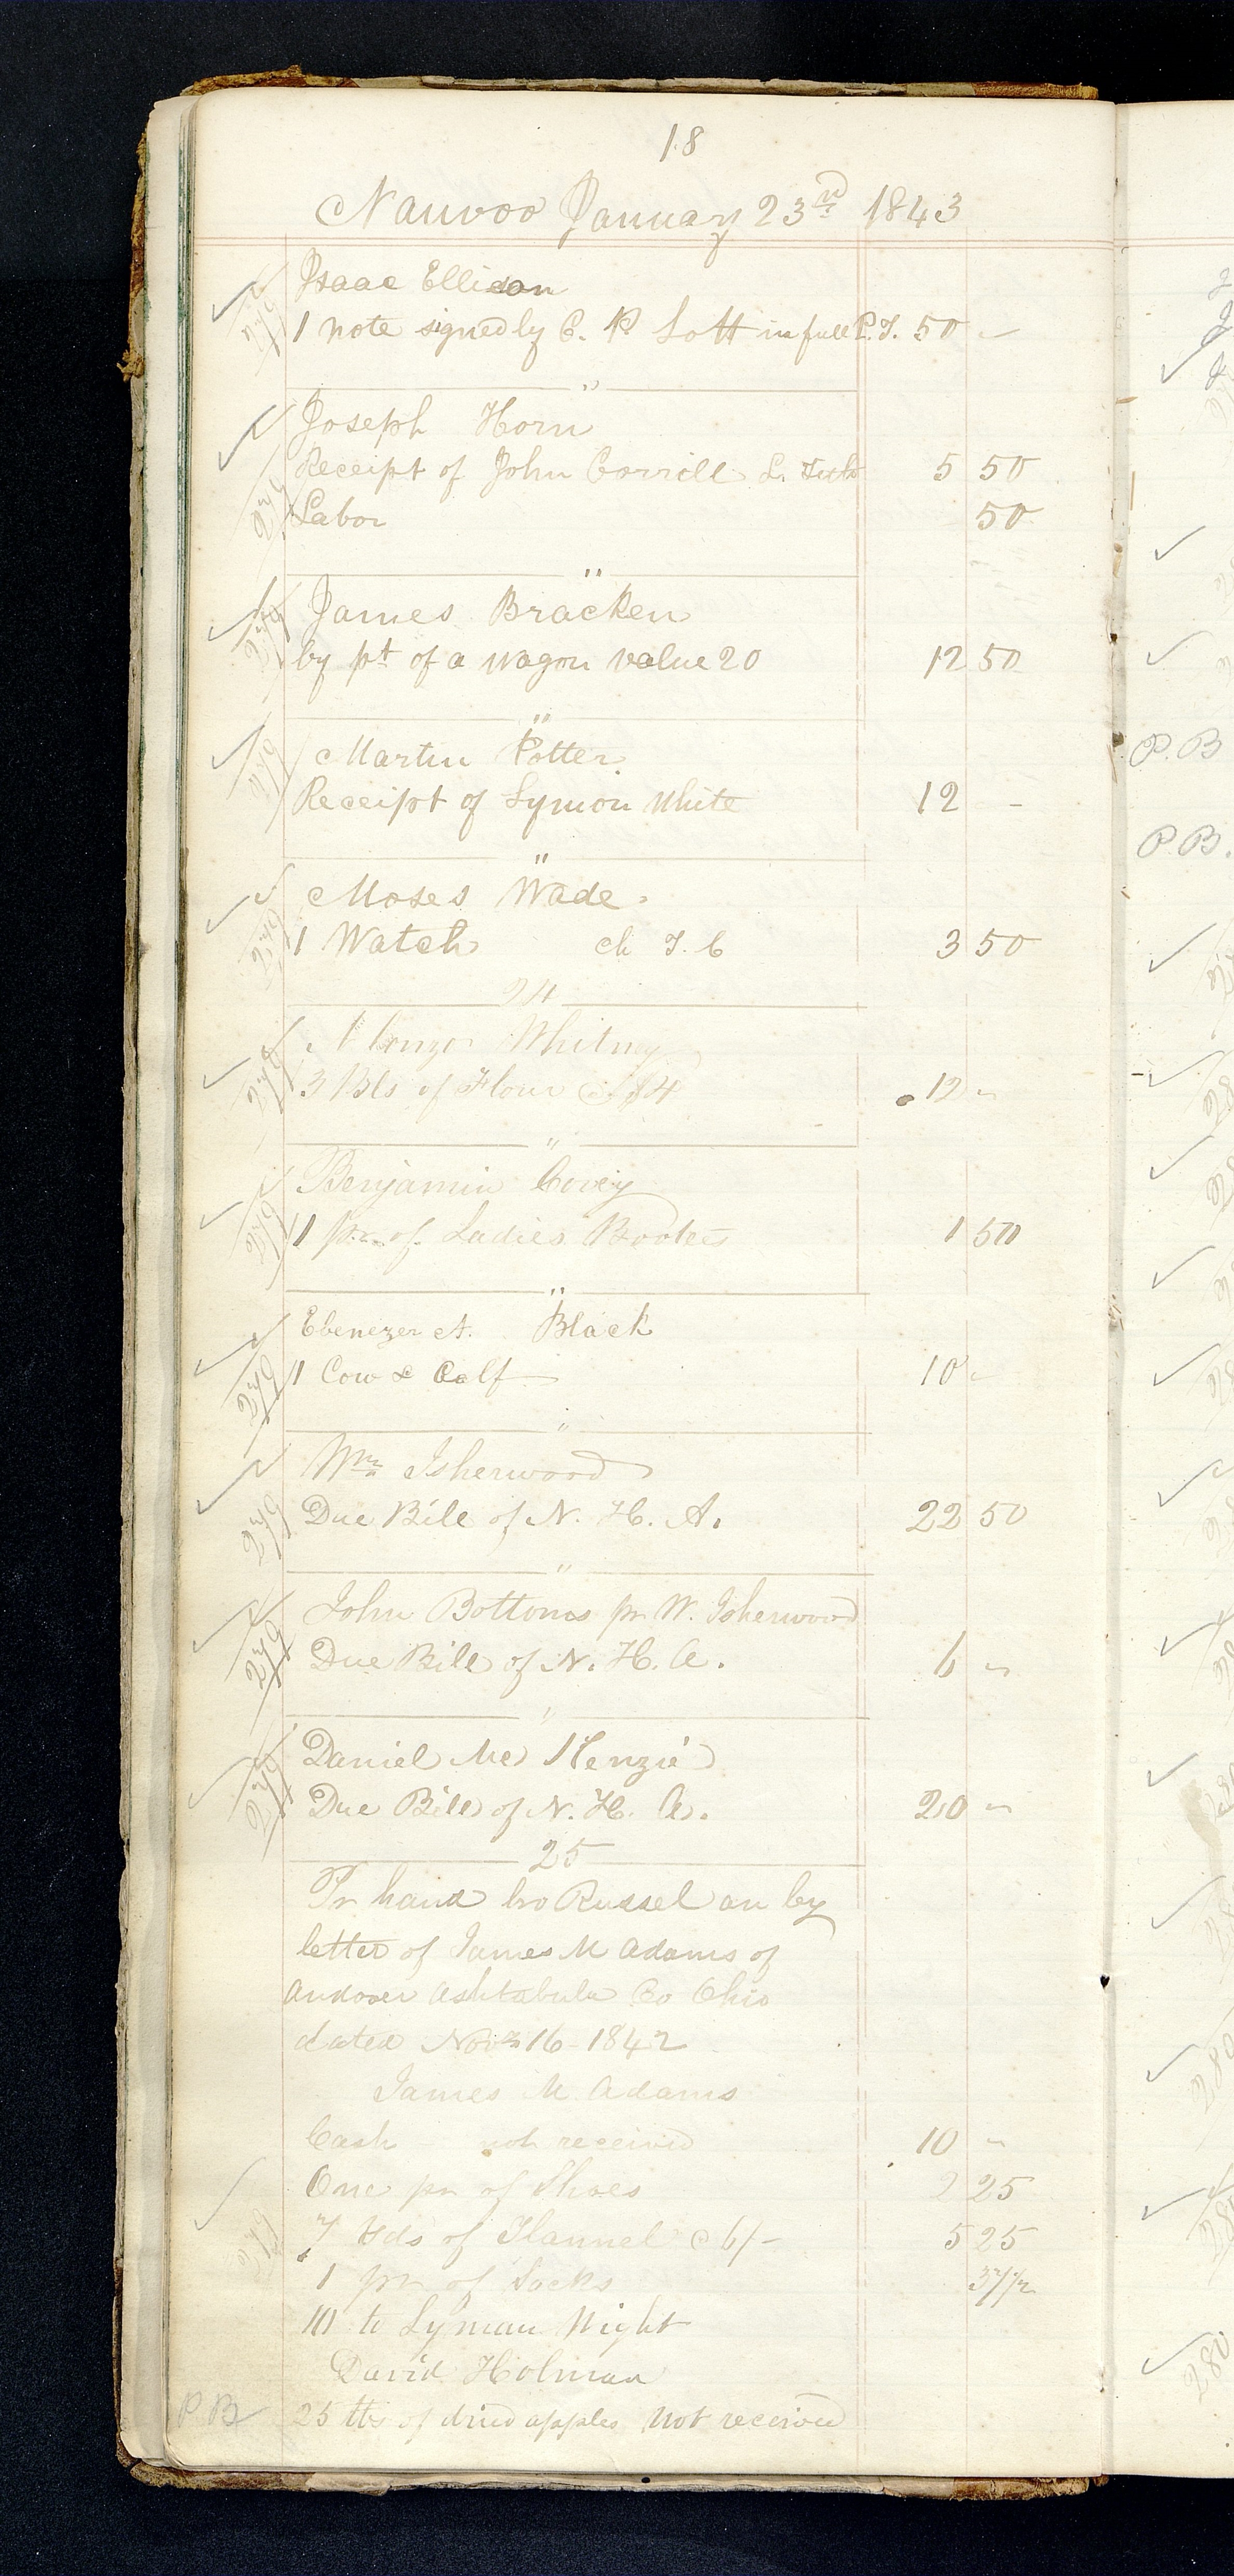 18
Nauvoo January 23rd 1843
Isaac Ellison
1 note signed by C. P. Lott in full P. T. 50 -
"
Joseph Horn
Receipt of John Corrill L. 5 50
Labor 50
"
James Bracken
by pt of a wagon value 20 12 50
"
Martin Potter
Receipt of Lymon White 12 -
"
Moses Wade.
1 Watch ch T. C 3 50
24
Alonzo Whitney
3 Bls of Flour @ $4 12 "
"
Benjamin Covey
1 pr. of Ladies Bootes 1 50
"
Ebenezer A. Black
1 Cow & Calf 10 -
"
Wm Isherwood
Due Bill of N. H. A. 22 50
"
John Bottoms pr W. Isherwood
Due Bill of N. H. A. 6 "
"
Daniel Mc Kenzie
Due Bill of N. H. A. 20 "
25
Pr hand bro Russel an by
letter of James M Adams of
Andover Ashtabula Co Ohio
dated Novm 16 - 1842
James M Adams
Cash not received 10 "
One pr of Shoes 2 25
7 Yds of Flannel @ 6/- 5 25
1 pr of Socks 37 1/2
to Lyman Wight
David Holman
P B 25 lbs of dried apples not received
P. B
P B.